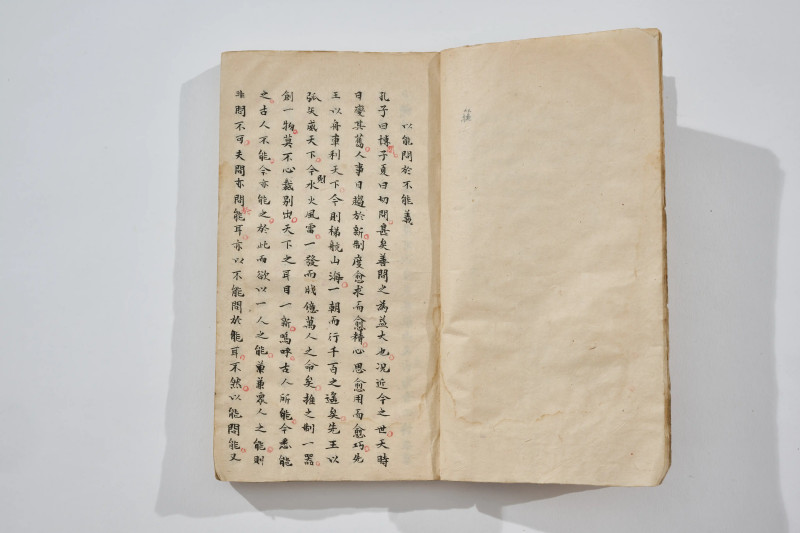 以能問於不能義
孔子曰子夏曰切問甚矣善問之為益大也況近今之世天時
日變其舊人事日趨於新制度愈求而愈精心思愈用而愈巧先
王以舟車利天下今則梯航山海一朝而行千百之遙矣先王以
弧矢威天下今則水火風雷一發而戕億萬人之命矣推之制一器
創一物莫不心裁別出天下之耳目一新嗚呼古人所能今悉能
之古人不能今亦能之於此而欲以一人之能兼兼眾人之能則
非問不可夫問亦問能耳亦以不能問於能耳不然以能問能又